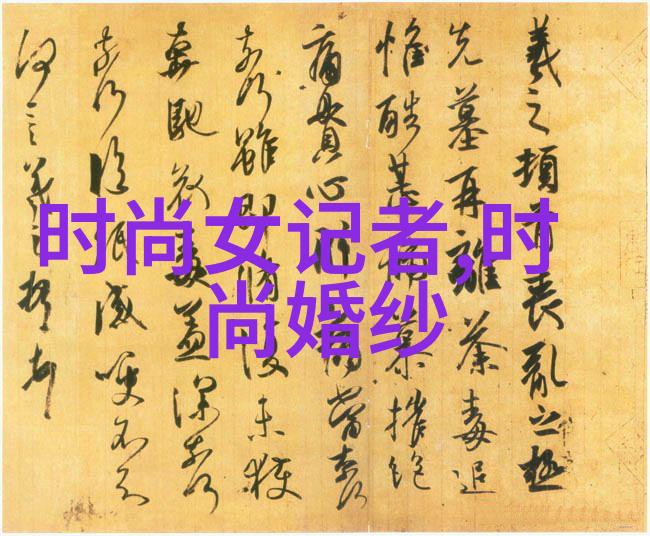 羲之頓首喪亂之極
先墓再離荼毒追
惟酷甚號慕摧絕
痛貫心肝痛當奈何
奈何雖即脩復未獲
奔馳哀毒益深奈何
奈何臨紙感哽不知
何言羲之頓首
时尚女记者,时
尚婚纱